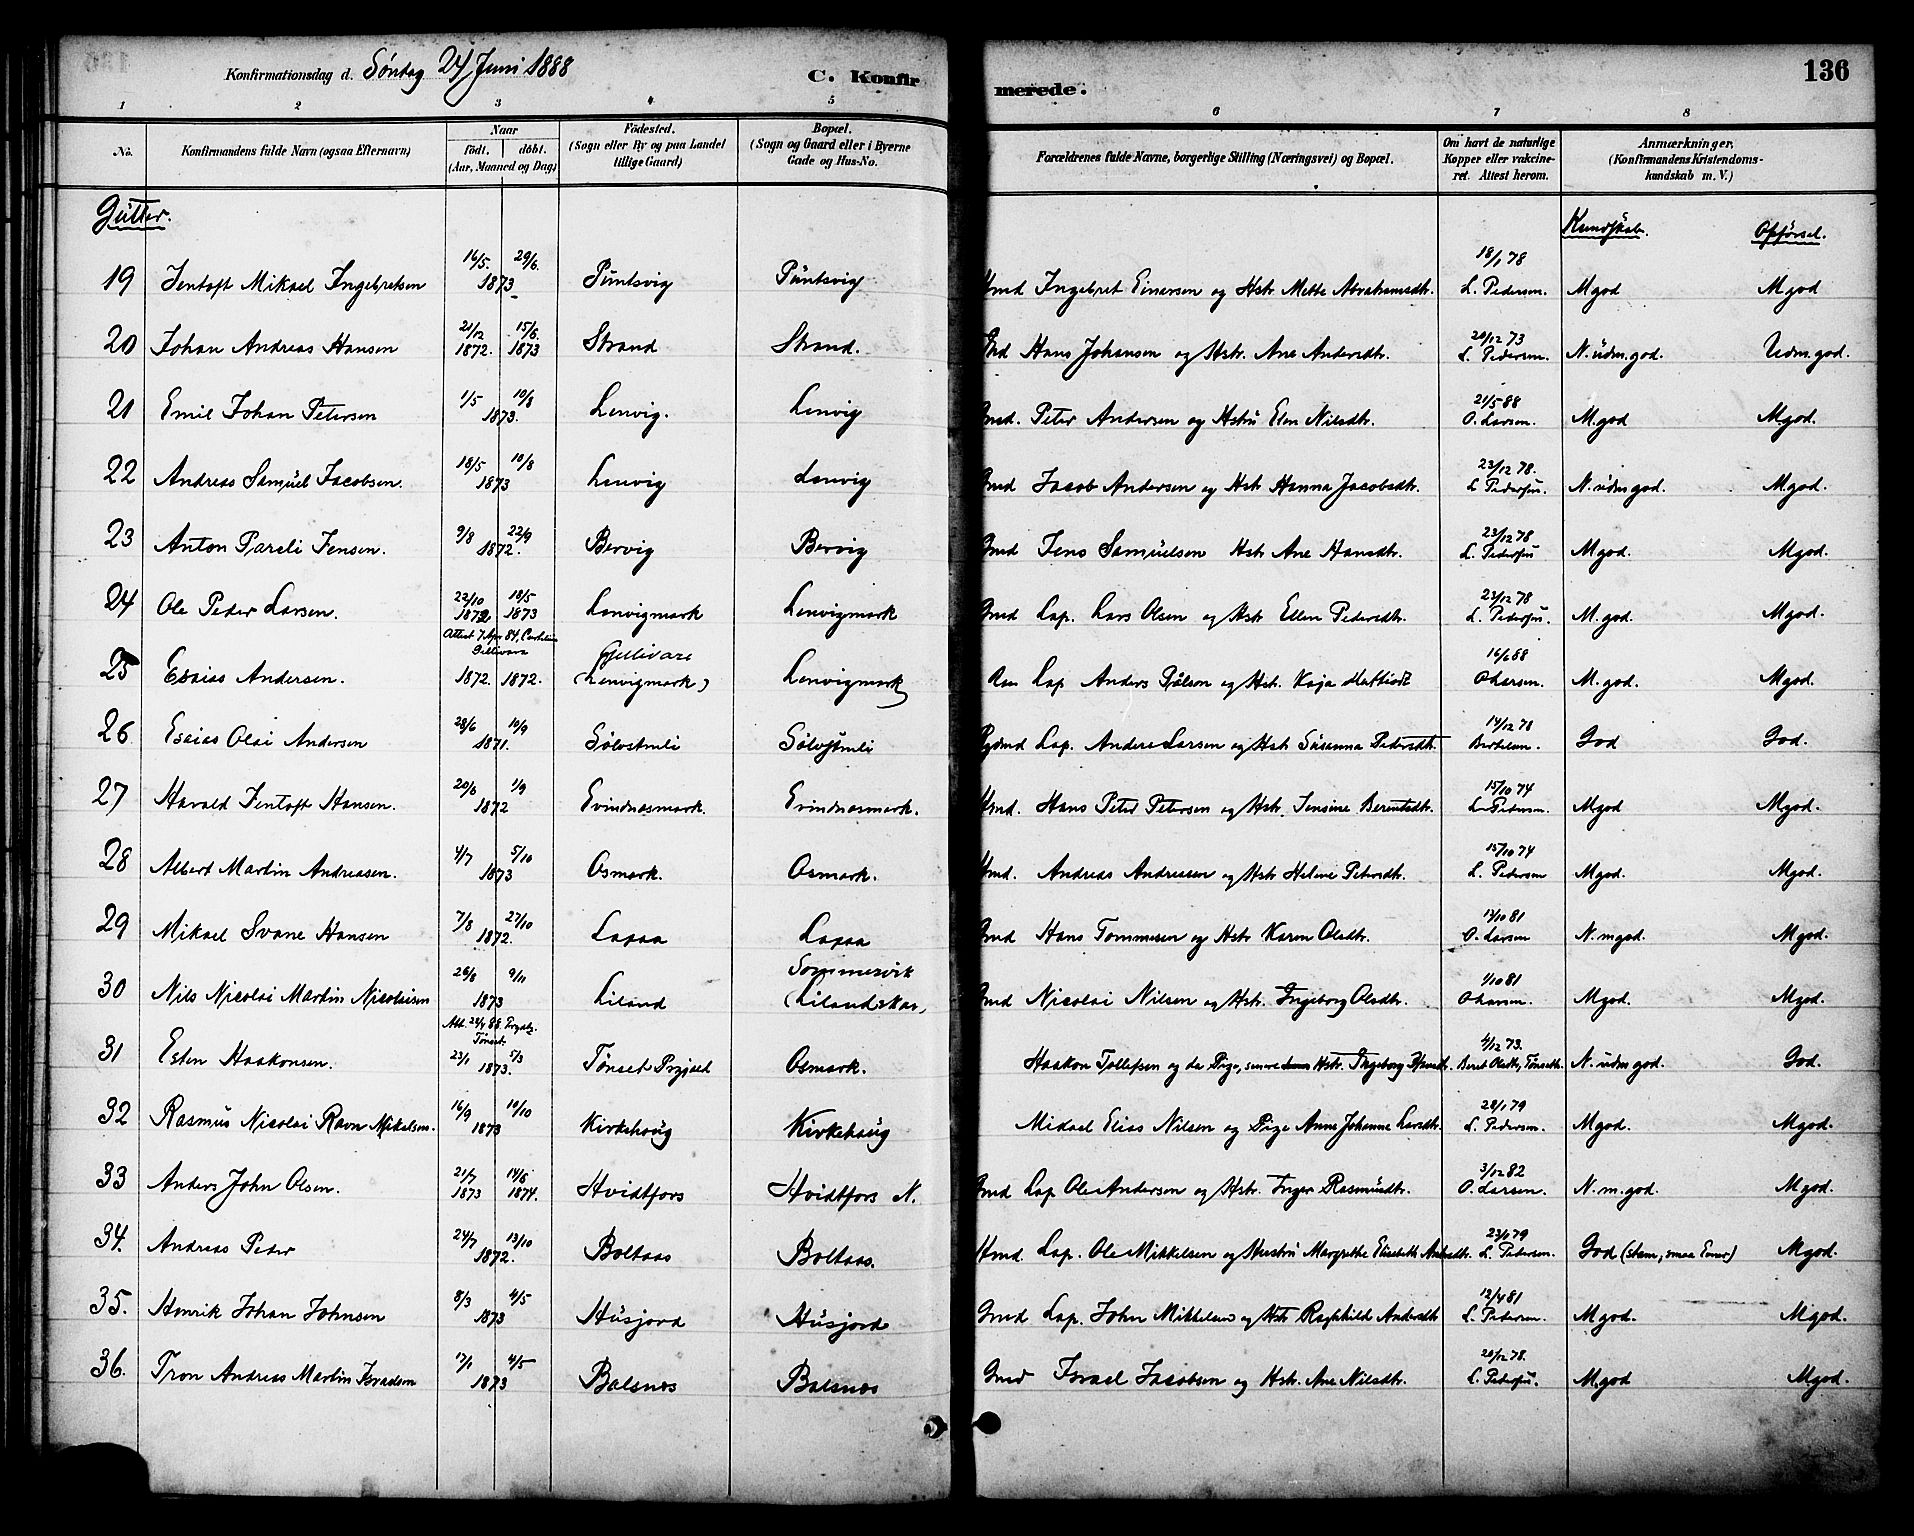 Konfirmationsdag d. Søndag 24/ Juni 1888 C. Konfir merede. 136
1 2 3 4 5 6 7 8
No. Konfirmandens fulde Navn (ogsaa Efternavn) Naar födt. döbt. (Aar, Maaned og Dag) Födested. (Sogn eller By og paa Landet tillige Gaard) Bopæl. (Sogn og Gaard eller i Byerne Gade og Hus-No. Forældrenes fulde Navne, borgerlige Stilling (Næringsvei) og Bopæl. Om havt de naturlige Kopper eller vakcineret. Attest herom. Anmærkninger. (Konfirmandens Kristendomskundskab m. V.)
Gutter. Kundskab. Opførsel.
19 Jentoft Mikael Ingebretsen 16/5. 29/6. 1873 Püntsvig Püntsvig Hmd Ingebret Einersen og Hstr Mette Abrahamsdtr. 18/1 78 L. Pedersen. Mgod Mgod
20 Johan Andreas Hansen 21/12 1872. 15/6. 1873 Strand Strand. Gmd Hans Johansen og Hstr. Ane Andersdtr. 20/12 73 L. Pedersen. N. üdm.god. Udm.god.
21 Emil Johan Petersen 1/5 10/8 1873. Lenvig. Lenvig Gmd. Peter Andersen og Hstrü Elen Nilsdtr. 21/5 88 O. Larsen. M.god Mgod.
22 Andreas Samüel Jacobsen. 18/5 10/8 1873 Lenvig Lenvig Gmd Jacob Andersen og Hstr Hanna Jacobsdtr. 23/12 78. L Pedersen. N. üdmgod. Mgod.
23 Anton Pareli Jensen. 9/8 22/9 1872. Bervig Bervig Gmd Jens Samüelsen Hstr Ane Hansdtr. 23/12 78 L. Pedersen Mgod. Mgod.
24 Ole Peder Larsen. 22/10 1872 18/5 1873 Lenvigmark Lenvigmark Gmd Lap. Lars Olsen og Hstr Ellen Pedersdtr. 23/12 78 L. Pedersen. M.god. Mgod.
25 Esaias Andersen. Attest 7 Apr. 84. Gellivara 1872. 1872. Gellivare (Lenvigmark) Lenvigmark Lap Anders og Hstr. Kaja 16/6 88 O Larsen. M.god. Mgod.
26 Esaias Olai Andersen 28/6 10/9 1871. Sølvstuli Sølvstuli Lap. Anders Larsen og Hstr Süsanna Pedersdtr. 14/12 78 God God.
27 Harald Jentoft Hansen. 20/6 1/9 1872 Evindnesmark. Evindnesmark. Hmd. Hans Peter Petersen og Hstr. Jensine Berentsdtr. 15/10 74 L. Pedersen Mgod Mgod.
28 Albert Martin Andreasen. 4/7 5/10 1873 Osmark. Osmark. Hmd. Andreas Andreasen og Hstr Helene Petersdtr. 15/10 74 L. Pedersen Mgod. Mgod.
29 Mikael Svane Hansen 7/8 27/10 1872. Lapaa Lapaa Gmd Hans Tommesen og Hstr Karen Olsdtr. 17/10 81 O. Larsen N. mgod. Mgod.
30 Nils Nicolai Martin Nicolaisen 26/8 9/11 1873 Liland Sommervik (Lilandskar) Gmd Nicolai Nilsen og Hstr. Ingeborg Olsdtr. 1/10 81 O Larsen. Mgod. Mgod.
31 Esten Haakonsen. Tønset. 23/1 5/3 1873. Tønset Prgjæld Osmark. Haakon Tollefsen og da Pige, senere Hstr. Ingeborg 4/12 73. Beret N. üdmgod. God.
32 Rasmüs Nicolai Ravn Mikelsen. 16/9 10/10 1873 Kirkehaüg Kirkehaüg Mikael Elias Nilsen og Pige Anne Johanna Larsdtr. 28/1 79 L. Pedersen. Mgod. Mgod.
33 Anders John Olsen. 21/7 1873 14/6 1874. Hvidtfors Hvidtfors N. Gmd Lap Ole Andersen og Hstr. Inger Rasmüsdtr. 3/12 82 O. Larsen. N. m.god. Mgod.
34. Andreas Peder 24/7 13/10 1872. Boltaas Boltaas. Hmd. Lap. Ole Mikkelsen og Hustrü Margrethe Elisabeth Andersdtr. 23/1 79 L. Pedersen. God (stam, smaa Evner) Mgod.
35. Henrik Johan Johnsen 8/3 4/5 1873 Hüsjord Hüsjord Gmd Lap. John Mikkelsen og Hstr Raghhild Andersdtr 12/4 81 L. Pedersen. Mgod. Mgod.
36. Tron Andreas Martin Israelsen 17/1 4/5 1873 Balsnes Balsnes Gmd Israel Jacobsen og Hstr. Ane Nilsdtr. 20/12 78. L. Pedersen. M.god Mgod.